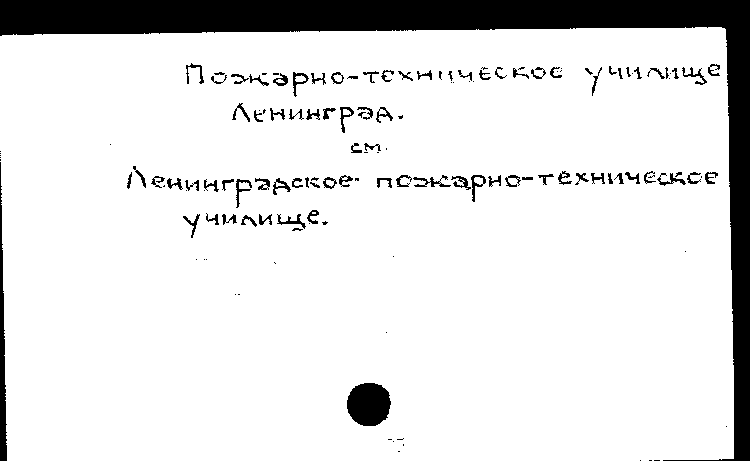 Пожарно-техническое училище
Ленинград.
см.
Ленинградское пожарно-техническое
училище.